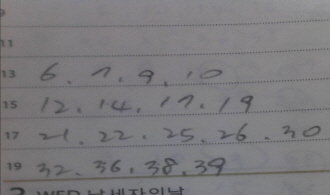 11
13 6. 7. 9. 10
15 12. 14. 17. 19
17 21. 22. 25. 26. 30
19 32. 36. 38. 39